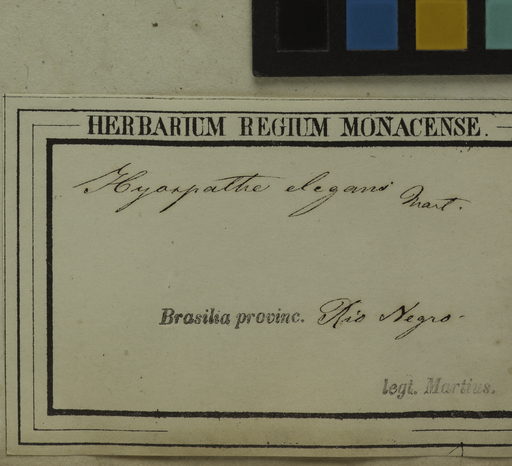 HERBARIUM REGIUM MONACENSE.
Hyospathe elegans Mart.
Brasilia provinc. Rio Negro.
legt. Martius.